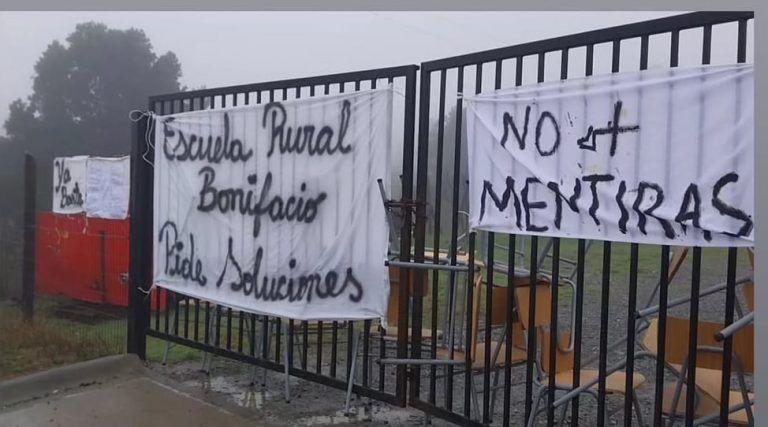 Ya
Basta
Escuela Rural
Bonifacio
Pide Soluciones
NO +
MENTIRAS